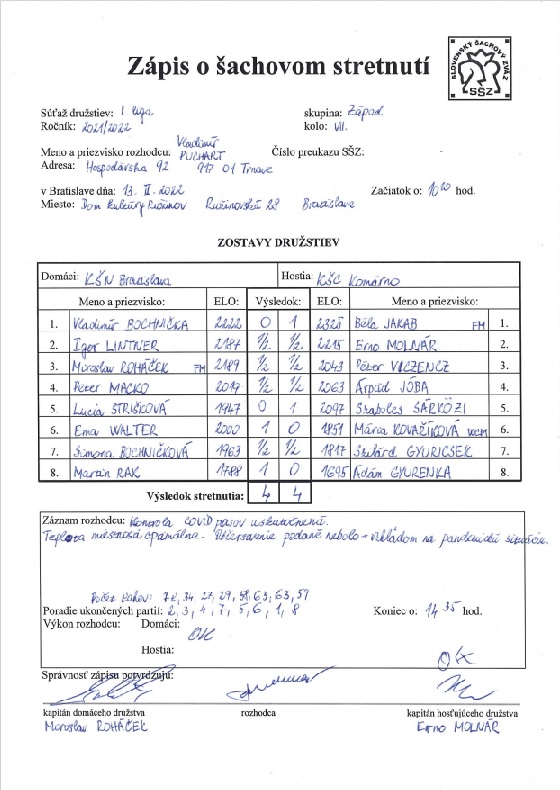 Zápis o šachovom stretnutí
SLOVENSKÝ ŠACHOVÝ ZVÄZ
SŠZ
Súťaž družstiev: I liga skupina: Západ
Ročník: 2021/2022 kolo: VII.
Meno a priezvisko rozhodcu: Vladimír PUCHART Číslo preukazu SŠZ: -
Adresa: Hospodárska 92 917 01 Trnava
v Bratislave dňa: 13. II. 2022 Začiatok o: 10 hod.
Miesto: Dom kultúry Ružinov Ružinovská 28 Bratislava
ZOSTAVY DRUŽSTIEV
Domáci: KŠN Bratislava Hostia: KŠC Komárno
Meno a priezvisko: ELO: Výsledok: ELO: Meno a priezvisko:
1. Vladimír BOCHNIČKA 2222 0 1 2325 Béla JAKAB FM 1.
2. Igor LINTNER 2187 1/2 1/2 2215 Erno MOLNÁR 2.
3. Miroslav ROHÁČEK FM 2189 1/2 1/2 2043 Péter 3.
4. Peter MACKO 2017 1/2 1/2 2063 Árpád JÓBA 4.
5. Lucia 1947 0 1 2097 Szabolcs SÁRKÖZI 5.
6. Ema WALTER 2000 1 0 1851 Mária KOVAČIKOVÁ wcm 6.
7. Simona BOCHNIČKOVÁ 1963 1/2 1/2 1817 GYURICSEK 7.
8. Martin RAK 1788 1 0 1695 Ádám GYURENKA 8.
Výsledok stretnutia: 4 4
Záznam rozhodcu: Kontrola COVID pasov uskutočnená.
Teplota miestnosti optimálna. Občerstvenie podané nebolo - vzhľadom na pandemickú situáciu.
Počet ťahov: 72, 34 27, 29, 58, 63, 63, 57
Poradie ukončených partií: 2, 3, 4, 7, 5, 6, 1, 8 Koniec o: 14 35 hod.
Výkon rozhodcu: Domáci: OK
Hostia: OK
Správnosť zápisu potvrdzujú:
kapitán domáceho družstva rozhodca kapitán hosťujúceho družstva
Miroslav ROHÁČEK Erno MOLNÁR